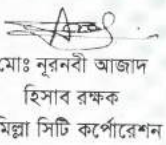 মোঃ নূরনবী আজাদ
হিসাব রক্ষক
মিল্লা সিটি কর্পোরেশন